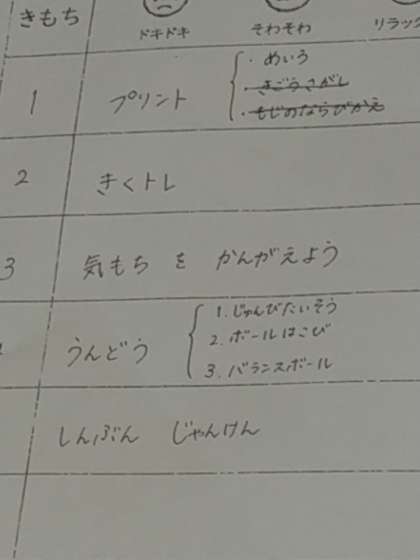 きもち
ドキドキ そわそわ リラック
1 プリント
・めいろ
・きごうさがし
・もじのならびかえ
2 きくトレ
3 気もち を かんがえよう
うんどう
1. じゅんびたいそう
2. ボールはこび
3. バランスボール
しんぶん じゃんけん